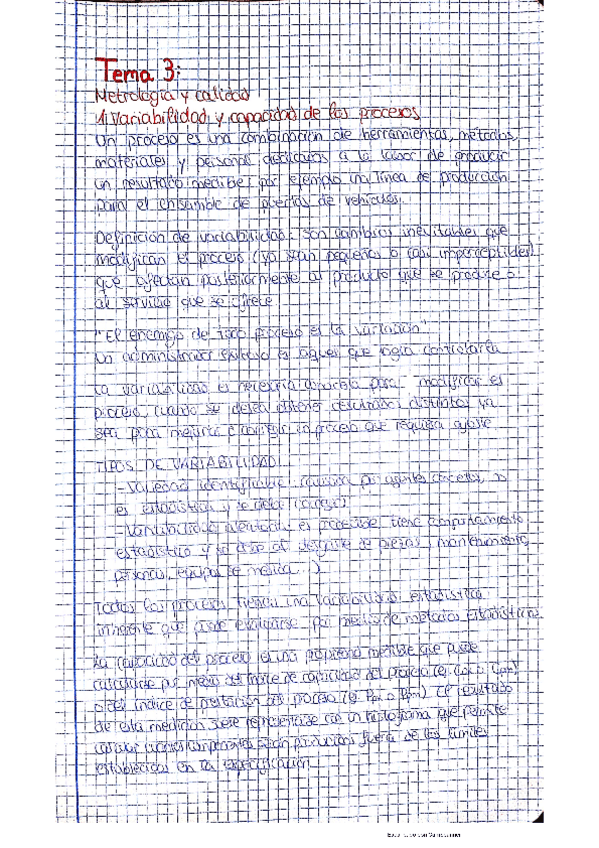 Tema 3:
Metrología y calidad
1. Variabilidad y capacidad de los procesos
Un proceso es una combinación de herramientas, métodos,
materiales y personal dedicados a la labor de producir
un resultado medible; por ejemplo un línea de producción
para el ensamble de puertas de vehículos.
Definición de variabilidad: son cambios inevitables que
modifican el proceso (ya sean pequeños o casi imperceptibles)
que afectan posteriormente al producto que se produce o
al servicio que se ofrece
"El enemigo de todo proceso es la variación"
Un administrador exitoso es aquel que logra controlarla
La variabilidad es necesaria conocerla para modificar el
proceso, cuando se desea obtener resultados distintos ya
sea para mejorar o corregir un proceso que requiera ajuste
TIPOS DE VARIABILIDAD
- identificable: causada por agentes concretos, no
es estadística y se debe corregir
- es predecible, tiene comportamiento
estadístico y se debe al desgaste de piezas, mantenimiento,
personas, equipos de medida...)
Todos los procesos tienen una variabilidad estadística
inherente que puede evaluarse por medio de métodos estadísticos
La capacidad del proceso es una propiedad medible que puede
calcularse por medio del índice de capacidad del proceso (ej. Cpk o Cpm)
o del índice de prestación del proceso (ej. Ppk o Ppm). El resultado
de esta medición suele representarse con un histograma que permite
calcular cuántos componentes serán producidos fuera de los límites
establecidos en la especificación